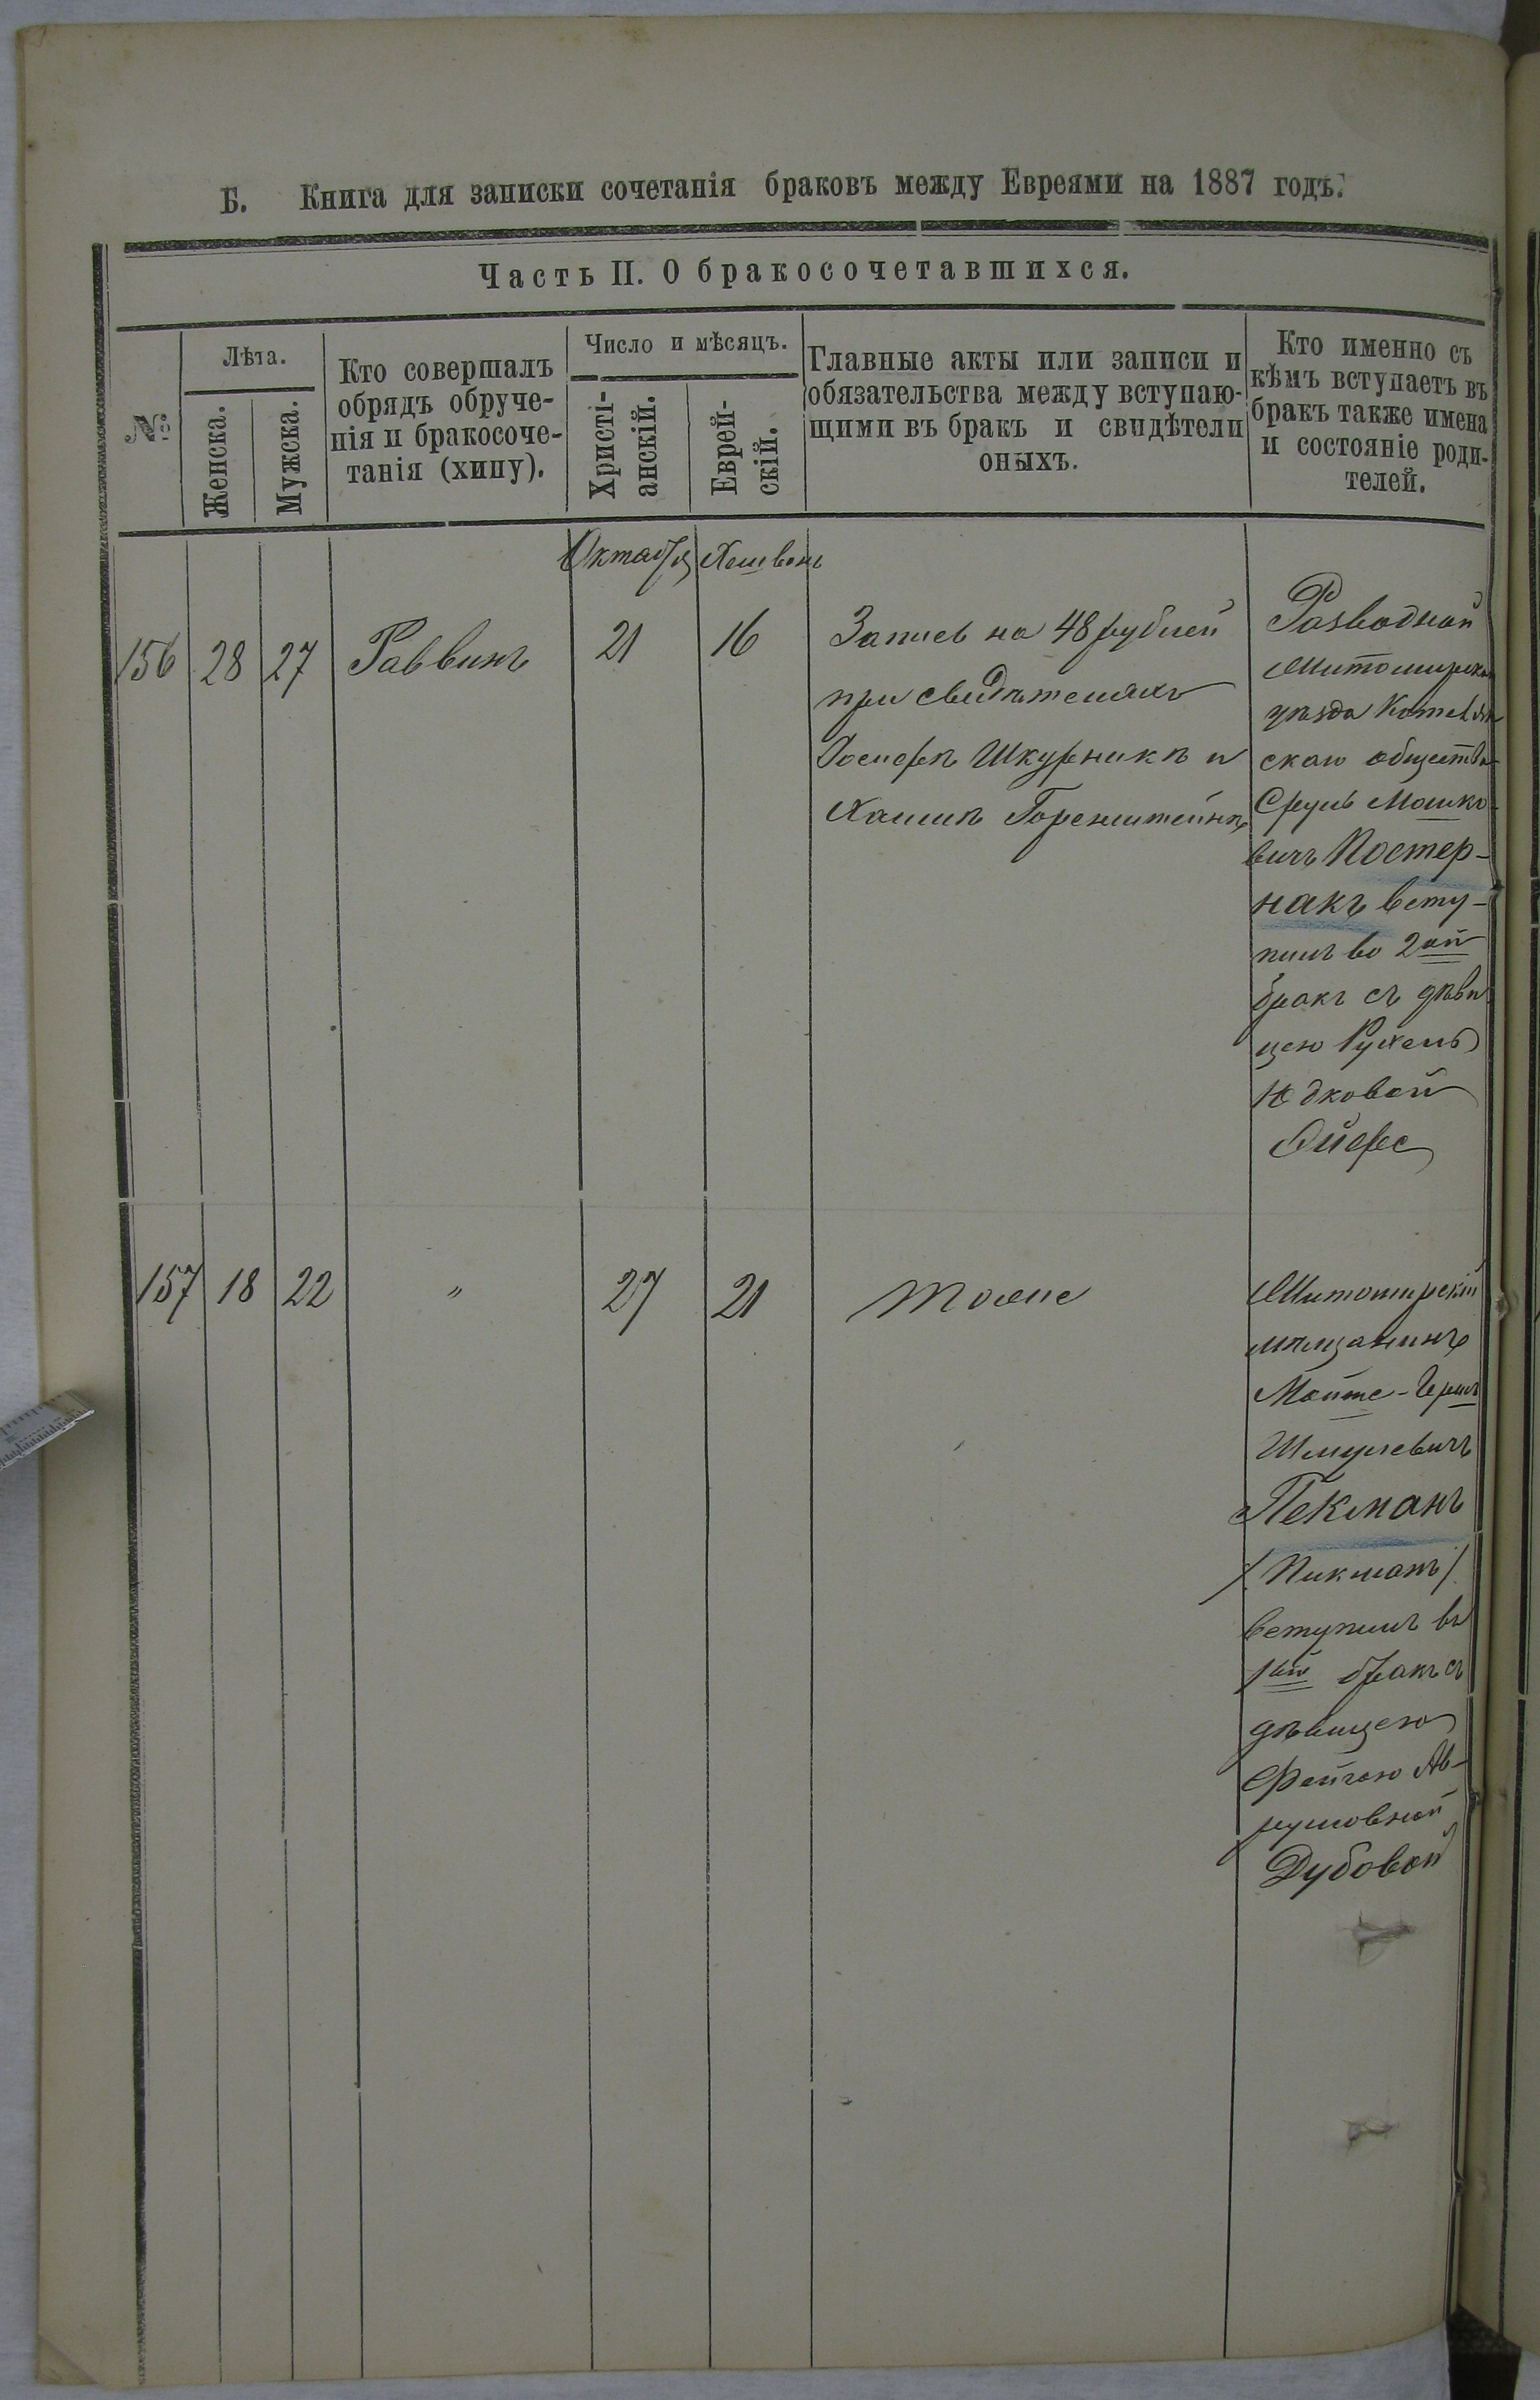 Б. Книга для записки сочетанія браковъ между Евреями на 1887 годъ.
Часть II. О бракосочетавшихся.
№
Лѣта.
Женска.
Мужска.
Кто совершалъ
обрядъ обруче-
нія и бракосоче-
танія (хипу).
Число и мѣсяцъ.
Христі-
анскій.
Еврей-
скій.
Главные акты или записи и
обязательства между вступаю-
щими въ бракъ и свидѣтели
оныхъ.
Кто именно съ
кѣмъ вступаетъ въ
бракъ также имена
и состояніе роди-
телей.
Октября Хешвонъ
156 28 27 Раввинъ 21 16
Запись на 48 рублей
при свидѣтеляхъ
Іосифѣ Шкурникѣ и
Хаимѣ Горенштейнѣ
Разводной
Житомирска
уѣзда
скаго общества
Сруль Мошко-
вичъ Постер-
накъ всту-
пилъ во 2ой
бракъ съ дѣви
цею Рухель
Юдковой
Ойферс
157 18 22 " 27 21 Тоже
Житомирскій
мѣщанинъ
Мойше-Герш
Шмулевичъ
Пекманъ
/Пикманъ/
вступилъ въ
1ый бракъ съ
дѣвицею
Фейгою Ав-
румовной
Дубовой